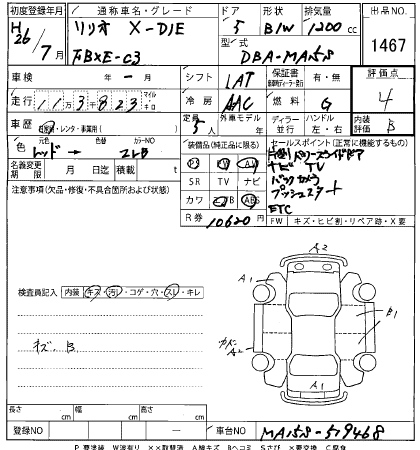 初度登録年月 通称車名・グレード ドア 形状 排気量 出品NO
H26/7月 ソリオ X-DJE 5 B/W 1200cc 1467
FBXE-C3 型式 DBA-MA15S
車検 年 - 月 シフト IAT 保証書 有・無 評価点
走行 113823 マイル キロ 冷房 AAC 燃料 G 4
車歴 自家用・レンタ・事業用( ) 定員 5人 外車モデル 年 ディーラー 並行 ハンドル 左・右 内装評価 B
色 レッド → 元色 色替 カラーNO ZCB
装備品(純正品に限る) セールスポイント(正常に機能するもの)
名義変更期限 月 日 積載 t
PS PW AW
ナビ TV
SR TV ナビ
バックカメラ
カワ エアB ABS
プッシュスタート
注意事項(欠品・修復・不具合箇所および状態)
R券 10620円
ETC
FW キズ・ヒビ割・リペア跡・X要
検査員記入 内装 キズ・汚レ・コゲ・穴・スレ・キレ
キズ、B
A2
A1
B1
A2
A1
長さ cm 幅 cm 高さ cm
登録NO - 車台NO MA15S-519468
P要塗装 W波有り ××取替済 A線キズ Bヘコミ Sさび ×要交換 C腐食